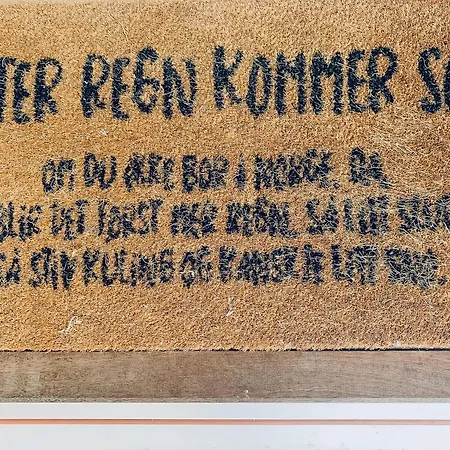 TER REGN KOMMER S
OM DU IKKE BOR I NORGE. DA
BLIR DET FØRST MER REGN, SÅ LITT
SÅ STIV KULING OG KANSKJE LITT